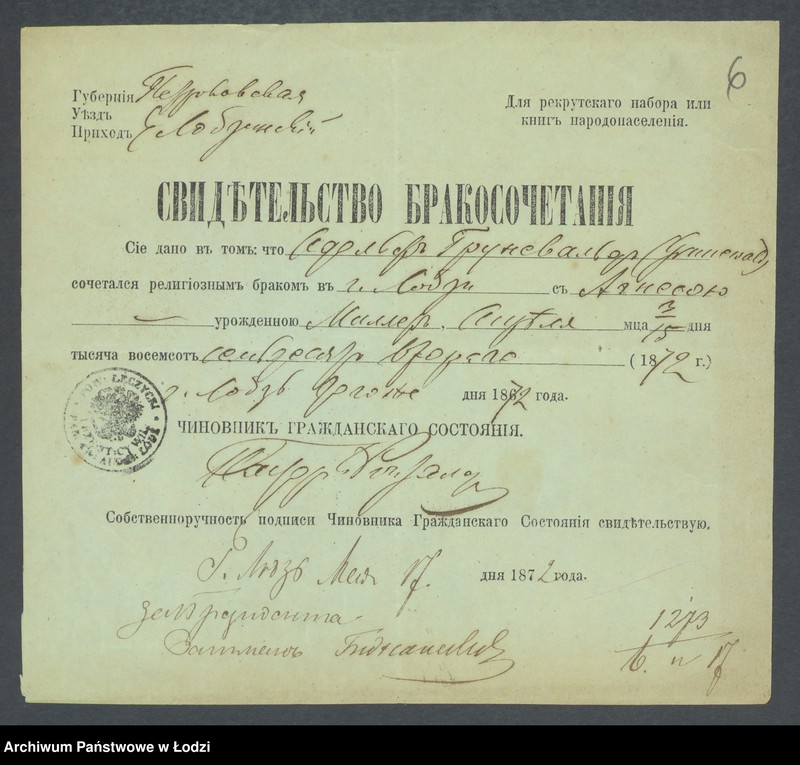 6
Губернія Петроковская
Уѣздъ
Приходъ Е. Лодзинскій
Для рекрутскаго набора или
книгъ народонаселенія.
СВИДѢТЕЛЬСТВО БРАКОСОЧЕТАНІЯ
Сіе дано въ томъ: что Адольфъ Груневальдъ (Grunewald)
сочетался религіознымъ бракомъ въ г. Лодзи съ Агнесою
— урожденною Миллеръ. Апрѣля мца 3/15 дня
тысяча восемсотъ семьдесятъ втораго (1872 г.)
г. Лодзь дня 1872 года.
ЧИНОВНИКЪ ГРАЖДАНСКАГО СОСТОЯНІЯ.
Пасторъ
Собственноручность подписи Чиновника Гражданскаго Состоянія свидѣтельствую.
Г. Лодзь Мая 17. дня 1872 года.
за Президента
1273
17
POW: ŁĘCZYCKI
Archiwum Państwowe w Łodzi